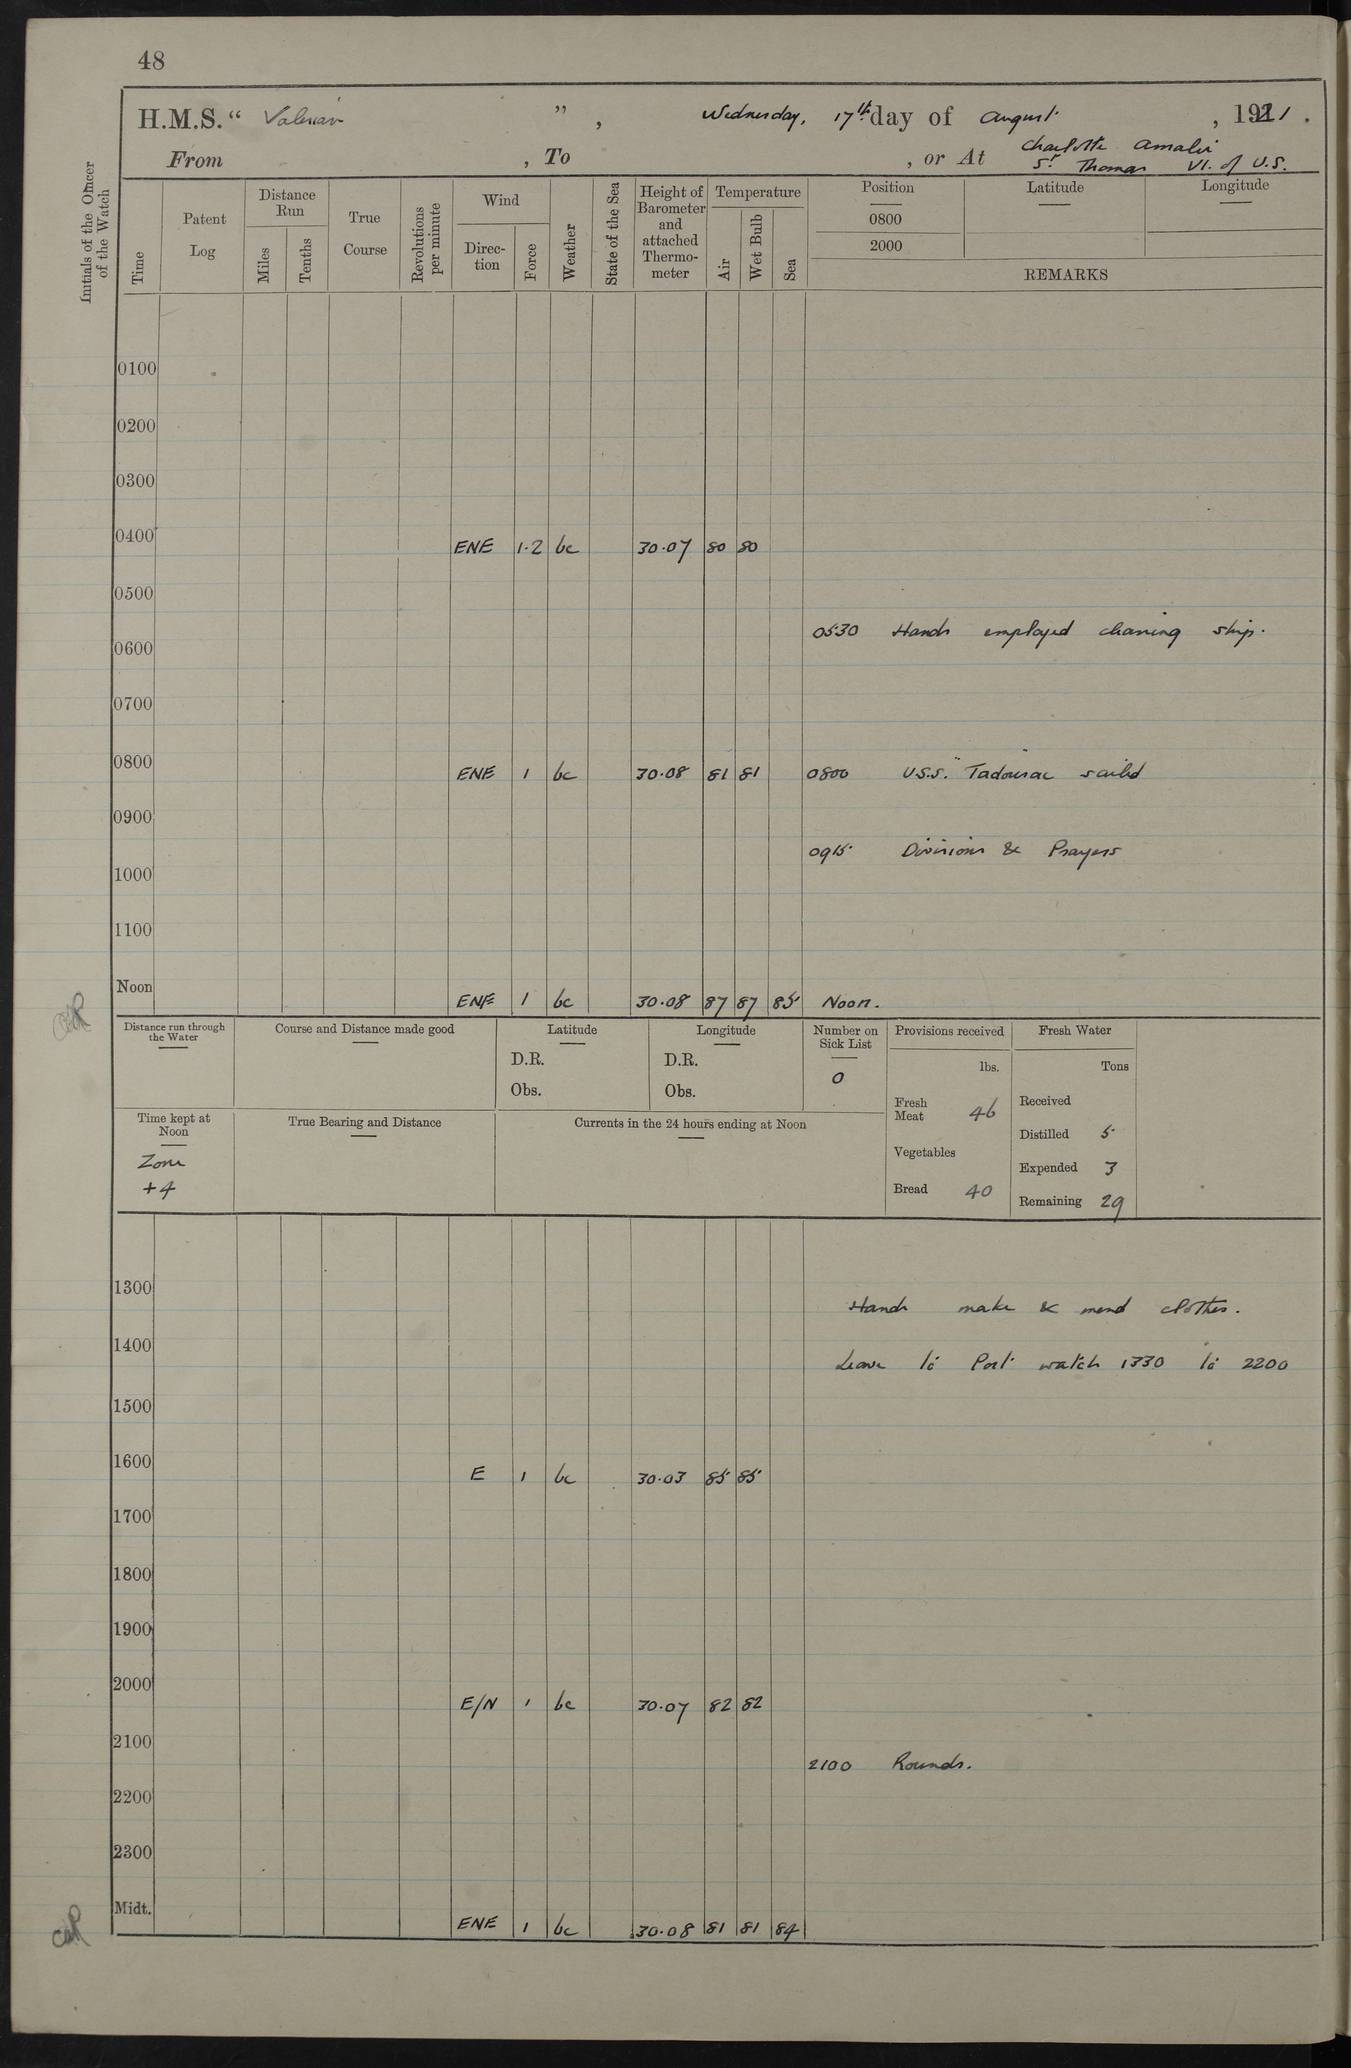 48
H.M.S. “ Valerian ” , Wednesday, 17th day of August , 1921 .
From , To , or At Charlotte Amalie
St Thomas VI. of U.S.
Initials of the Officer of the Watch
Time
Patent Log
Distance Run
Miles
Tenths
True Course
Revolutions per minute
Wind
Direc-tion
Force
Weather
State of the Sea
Height of Barometer and attached Thermo-meter
Temperature
Air
Wet Bulb
Sea
Position
0800
2000
Latitude
Longitude
REMARKS
0100
0200
0300
0400 ENE 1.2 bc 30.07 80 80
0500
0530 Hands employed cleaning ship.
0600
0700
0800 ENE 1 bc 30.08 81 81 0800 U.S.S. "Tadousac" sailed
0900
0915 Divisions & Prayers
1000
1100
Noon ENE 1 bc 30.08 87 87 85 Noon.
Distance run through the Water
Course and Distance made good
Latitude
D.R.
Obs.
Longitude
D.R.
Obs.
Number on Sick List
0
Provisions received
lbs.
Fresh Meat 46
Vegetables
Bread 40
Fresh Water
Tons
Received
Distilled 5
Expended 3
Remaining 29
Time kept at Noon
Zone
+4
True Bearing and Distance
Currents in the 24 hours ending at Noon
1300
Hands make & mend clothes.
1400
Leave to Port watch 1330 to 2200
1500
1600 E 1 bc 30.03 85 85
1700
1800
1900
2000 E/N 1 bc 30.07 82 82
2100
2100 Rounds.
2200
2300
Midt. ENE 1 bc 30.08 81 81 84